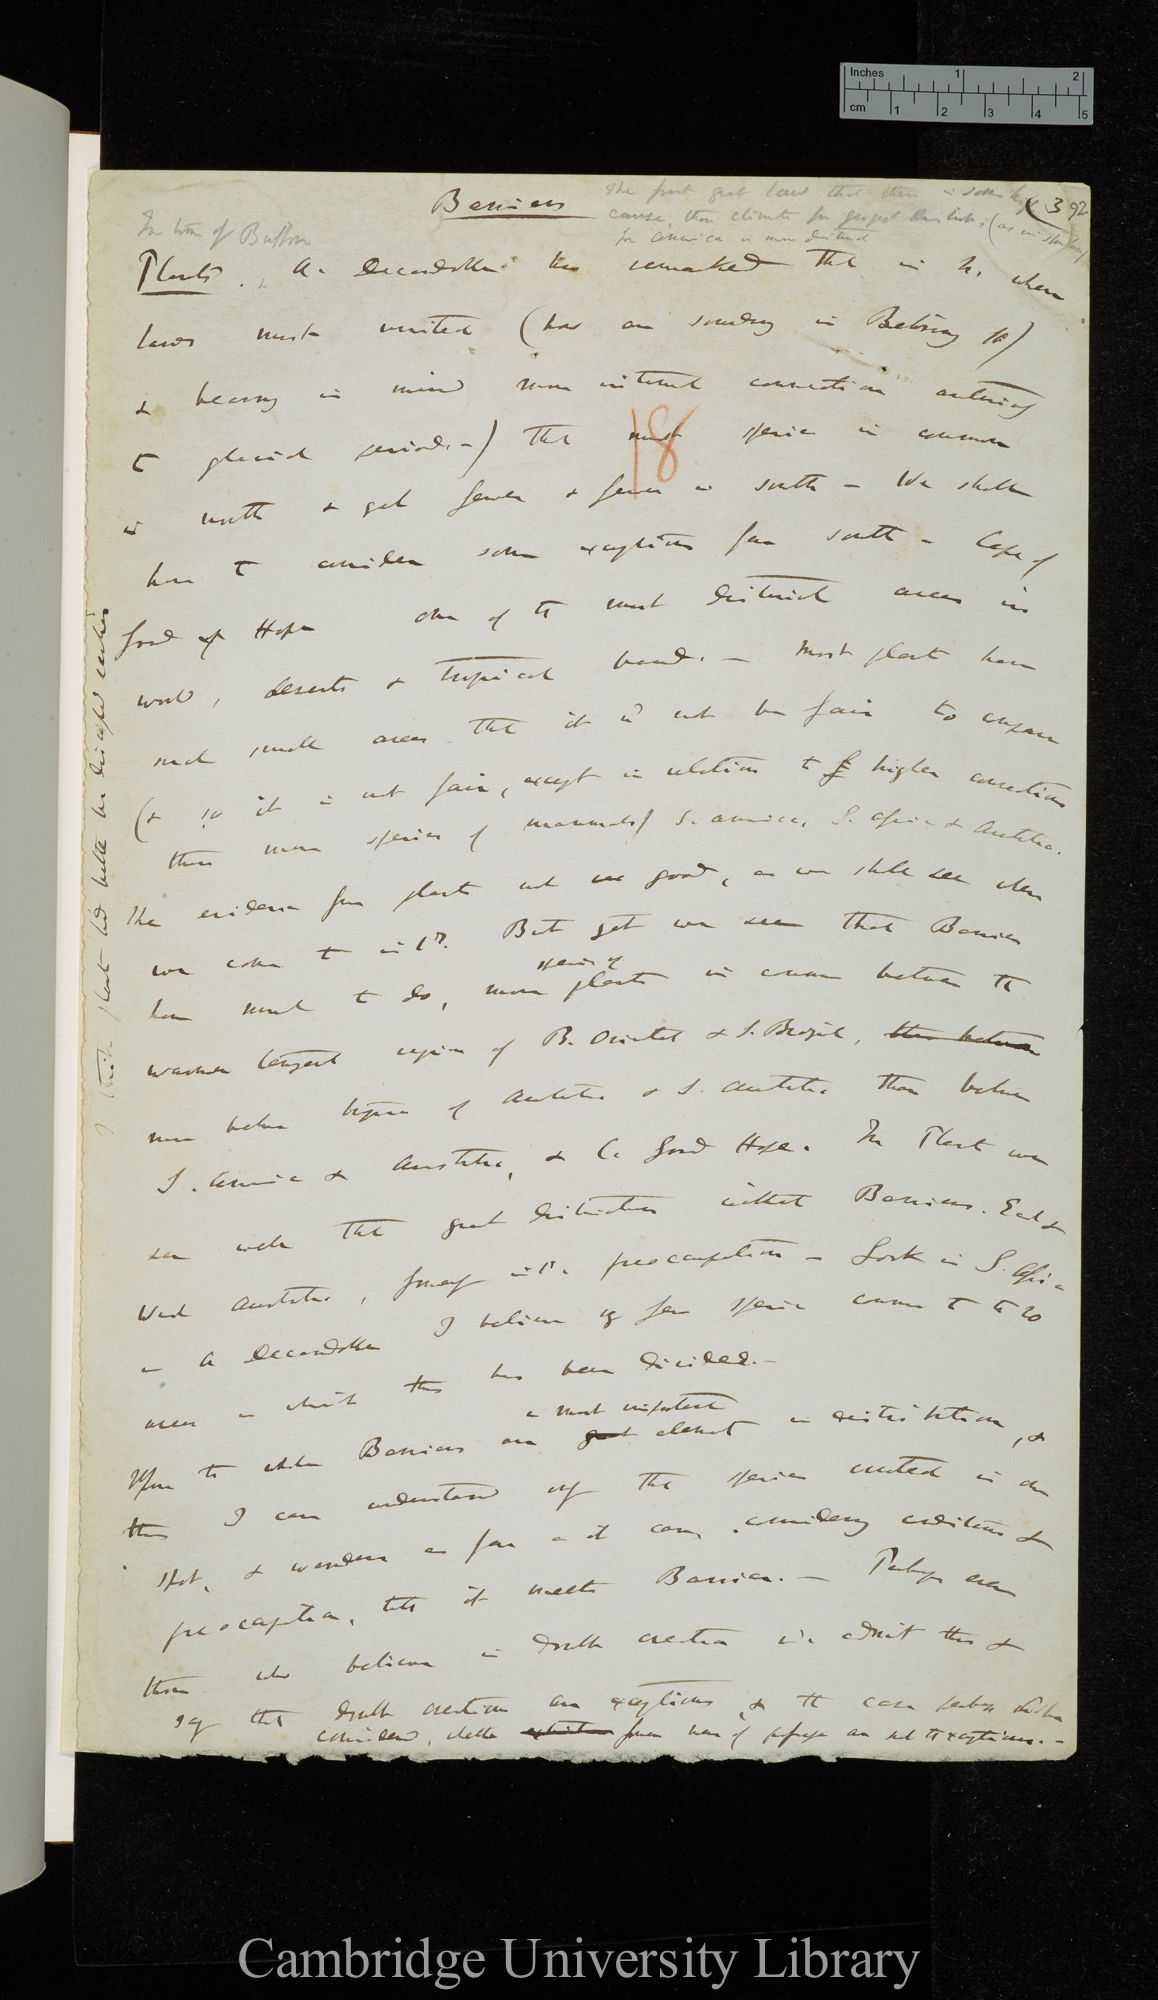 Inches 1 2
cm 1 2 3 4 5
The first great law that there is some
Barriers (3 92
cause, than climate for
In time of Buffon
for America is more distinct
Plants. A. Decandolle has remarked that in N. where
lands most united (how are sounding in Behring St)
& bearing in mind more intimate connection anterior
18
to glacial periods—) that most species in common
in north & get fewer & fewer in south — We shall
have to consider some exceptions far south — Cape of
Good Hope one of the most distinct areas in
world, deserts & tropical band. — Most plants have
such small areas that it is not be fair to compare
(& so it is not fair, except in relation to higher
than mere species of mammals) S. America, S. Africa & Australia.
The evidence from plants not good, as we shall see when
we come to isld. But yet we see that Barriers
have much to do, more species of plants in common between the
warmer temperate region of B. Oriental & S. Brazil, than between
more between tropics of Australia & S. Australia than between
S. America & Australia, & C. Good Hope. In Plants we
see well that great distinctions without Barriers. East &
West Australia, preoccupation — Look in S. Africa
in A Decandolle I believe few species common to the 20
areas in which this has been divided.—
Upon the whole Barriers are a most important great element in distribution, &
thus I can understand why the species created in one
spot, & wanders as far as it can, considering conditions &
preoccupation, till it meets Barrier. — Perhaps even
those who believe in double creation admit this &
say that double creations are exceptions & the case
considered, whether from view of are not the exceptions.—
I think plants had better be discussed earlier
Cambridge University Library